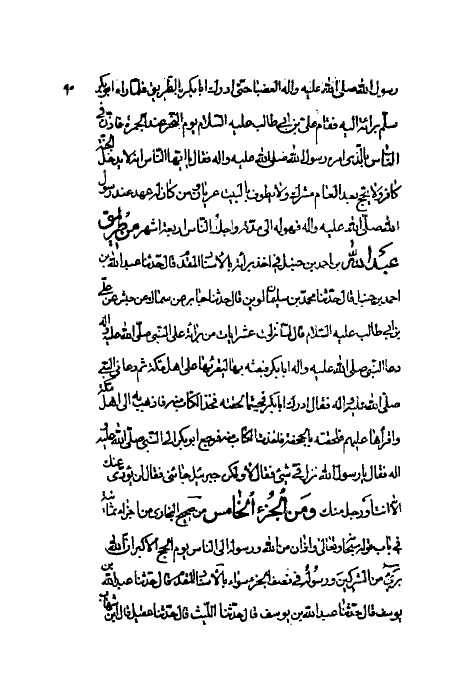 ٩٠
رسول الله صلى الله عليه واله العضبا حتى ادرك ابا بكر بالطريق فلما راه ابو بكر
سلم براءة اليه فقام علي بن ابي طالب عليه السلام يوم النحر عند الجمرة فاذن في
الناس بالذي امره رسول الله صلى الله عليه واله فقال يا ايها الناس انه لا يدخل الجنة
كافر ولا يحج بعد العام مشرك ولا يطوف بالبيت عريان ومن كان له عهد عند رسول
الله صلى الله عليه واله فهو له الى مدته واجل الناس اربعة اشهر ومن طريق
عبد الله بن احمد بن حنبل في اخذ براءة بالاسناد المقدم قال حدثنا عبد الله بن
احمد بن حنبل قال حدثنا محمد بن سليمان لوين قال حدثنا محمد بن جابر عن سماك عن حنش عن علي
بن ابي طالب عليه السلام قال لما نزلت عشر ايات من براءة على النبي صلى الله عليه واله
دعا النبي صلى الله عليه واله ابا بكر فبعثه بها ليقرئها على اهل مكة ثم دعاني النبي
صلى الله عليه واله فقال ادرك ابا بكر فحيثما لحقته فخذ الكتاب منه فاذهب به الى اهل مكة
واقراها عليهم فلحقته بالجحفة فاخذت الكتاب منه فرجع ابو بكر الى النبي صلى الله عليه
اله فقال يا رسول الله نزل في شيء فقال لا ولكن جبرئيل جاءني فقال لن يؤدي عنك
الا انت او رجل منك ومن الجزء الخامس من صحيح البخاري من اجزاء ثمانية
في باب قوله سبحانه وتعالى واذان من الله ورسوله الى الناس يوم الحج الاكبر ان الله
بريء من المشركين ورسوله في نصف الجزء سواء بالاسناد المقدم قال حدثنا عبد الله بن
يوسف قال حدثنا عبد الله بن يوسف قال حدثنا الليث قال حدثنا عقيل قال ابن شهاب